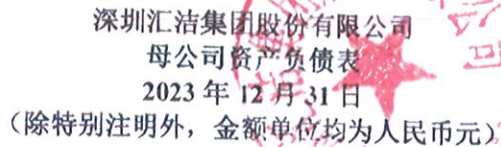 深圳汇洁集团股份有限公司
母公司资产负债表
2023 年 12 月 31 日
（除特别注明外，金额单位均为人民币元）